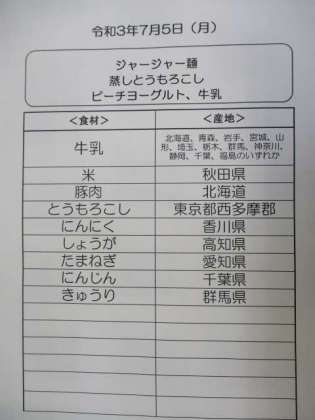 令和3年7月5日(月)
ジャージャー麺
蒸しとうもろこし
ピーチヨーグルト、牛乳
<食材> <産地>
牛乳 北海道、青森、岩手、宮城、山
形、埼玉、栃木、群馬、神奈川、
静岡、千葉、福島のいずれか
米 秋田県
豚肉 北海道
とうもろこし 東京都西多摩郡
にんにく 香川県
しょうが 高知県
たまねぎ 愛知県
にんじん 千葉県
きゅうり 群馬県